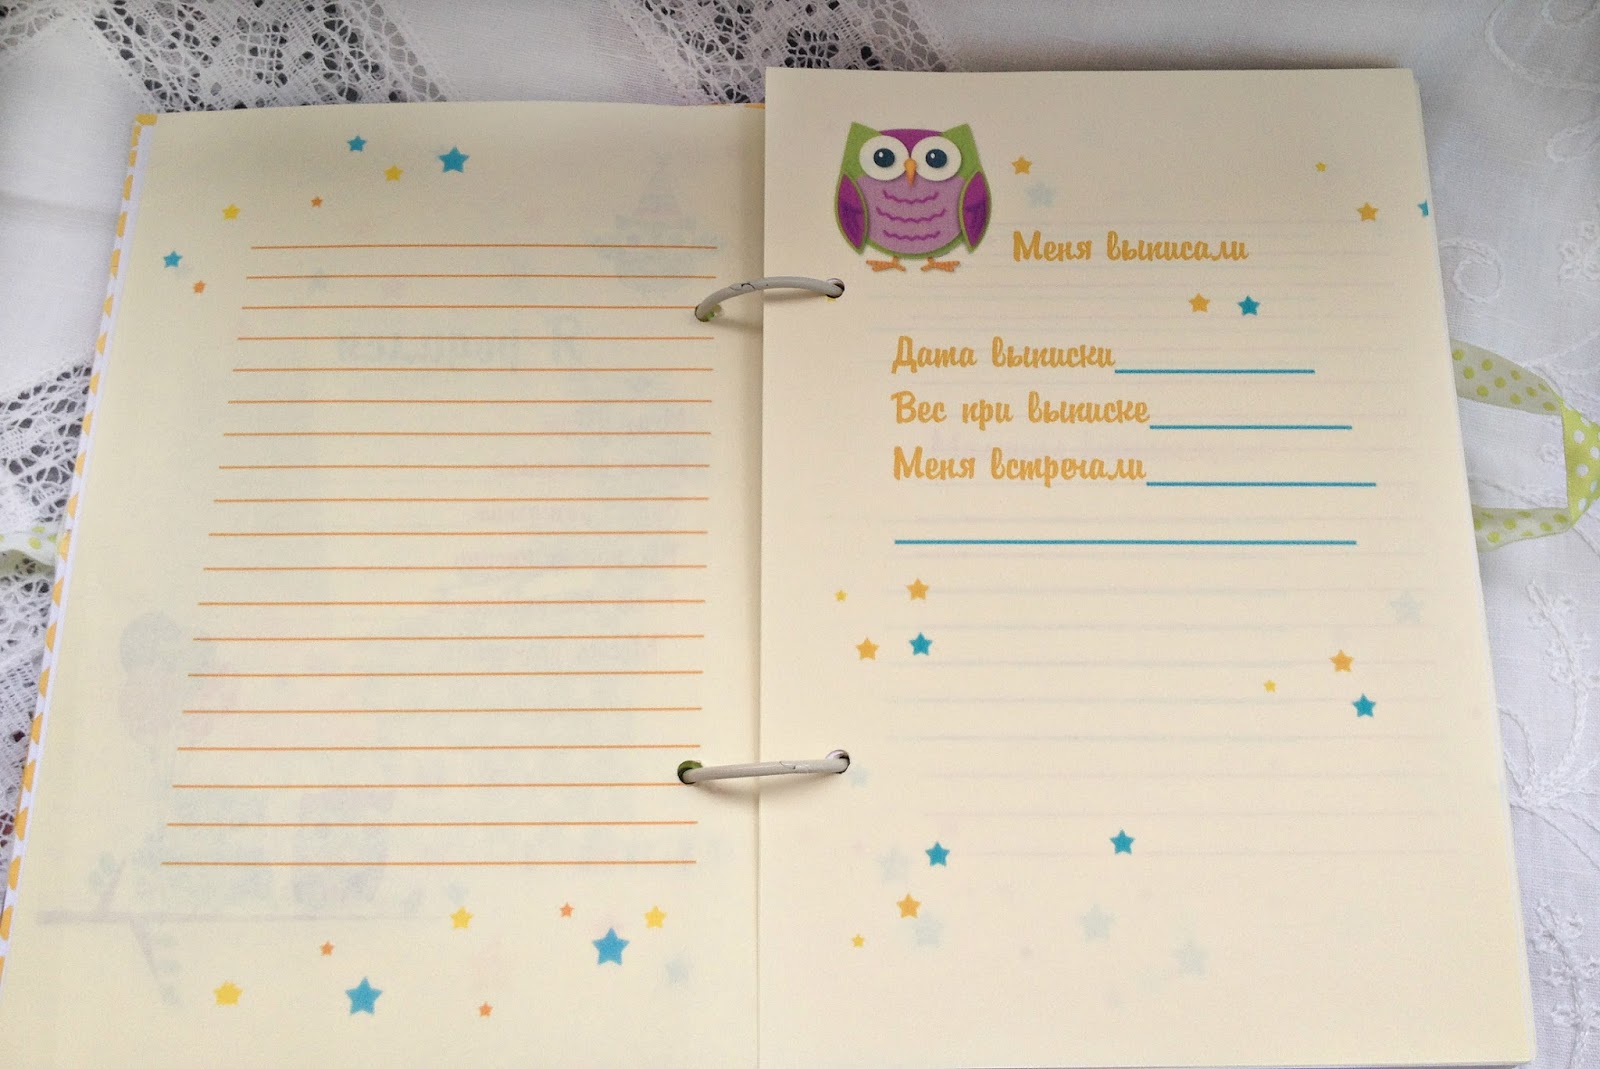 Меня выписали
Дата выписки
Вес при выписке
Меня встречали